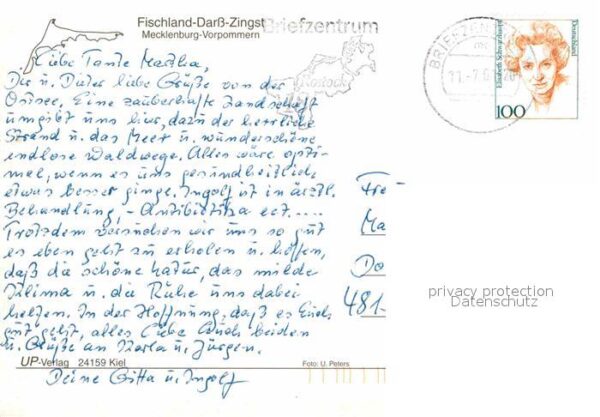 Fischland-Darß-Zingst
Mecklenburg-Vorpommern
Briefzentrum
Rostock
BRIEFZEN
Elisabeth Schwarzhaupt
Deutschland
100
Liebe Tante Martha,
Dir u. Dieter liebe Grüße von der
Ostsee. Eine zauberhafte Landschaft
umgibt uns hier, dazu der herrliche
Strand u. das Meer u. wunderschöne
endlose Waldwege. Alles wäre opti-
mal, wenn es uns gesundheitlich
etwas besser ginge. Ingolf ist in ärztl.
Behandlung, - Antibiotika ect....
Trotzdem versuchen wir uns so gut
es eben geht zu erholen u. hoffen,
daß die schöne Natur, das milde
Klima u. die Ruhe uns dabei
helfen. In der Hoffnung, daß es Euch
gut geht, alles Liebe Euch beiden
u. Grüße an Karla u. Jürgen.
UP-Verlag 24159 Kiel
Foto: U. Peters
Deine Gitta u. Ingolf
Fre
Ma
Do
481
privacy protection
Datenschutz